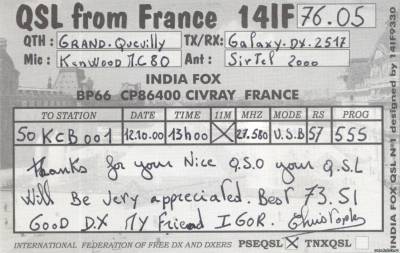 QSL from France 14IF 76.05
QTH : GRAND-Quevilly TX/RX: Galaxy.DX.2517
Mic : KENWOOD M.C80 Ant : SirTel 2000
INDIA FOX
BP66 CP86400 CIVRAY FRANCE
TO STATION DATE TIME 11M MHZ MODE RS PROG
50 KCB001 12.10.00 13H00 X 27.580 U.S.B 57 555
Thanks for your Nice Q.S.O your Q.S.L
Will Be Very appreciated. Best 73.51
GOOD D.X MY Friend IGOR. Christophe
INTERNATIONAL FEDERATION OF FREE DX AND DXERS PSEQSL X TNXQSL
INDIA FOX QSL N°1 designed by 14IF9330